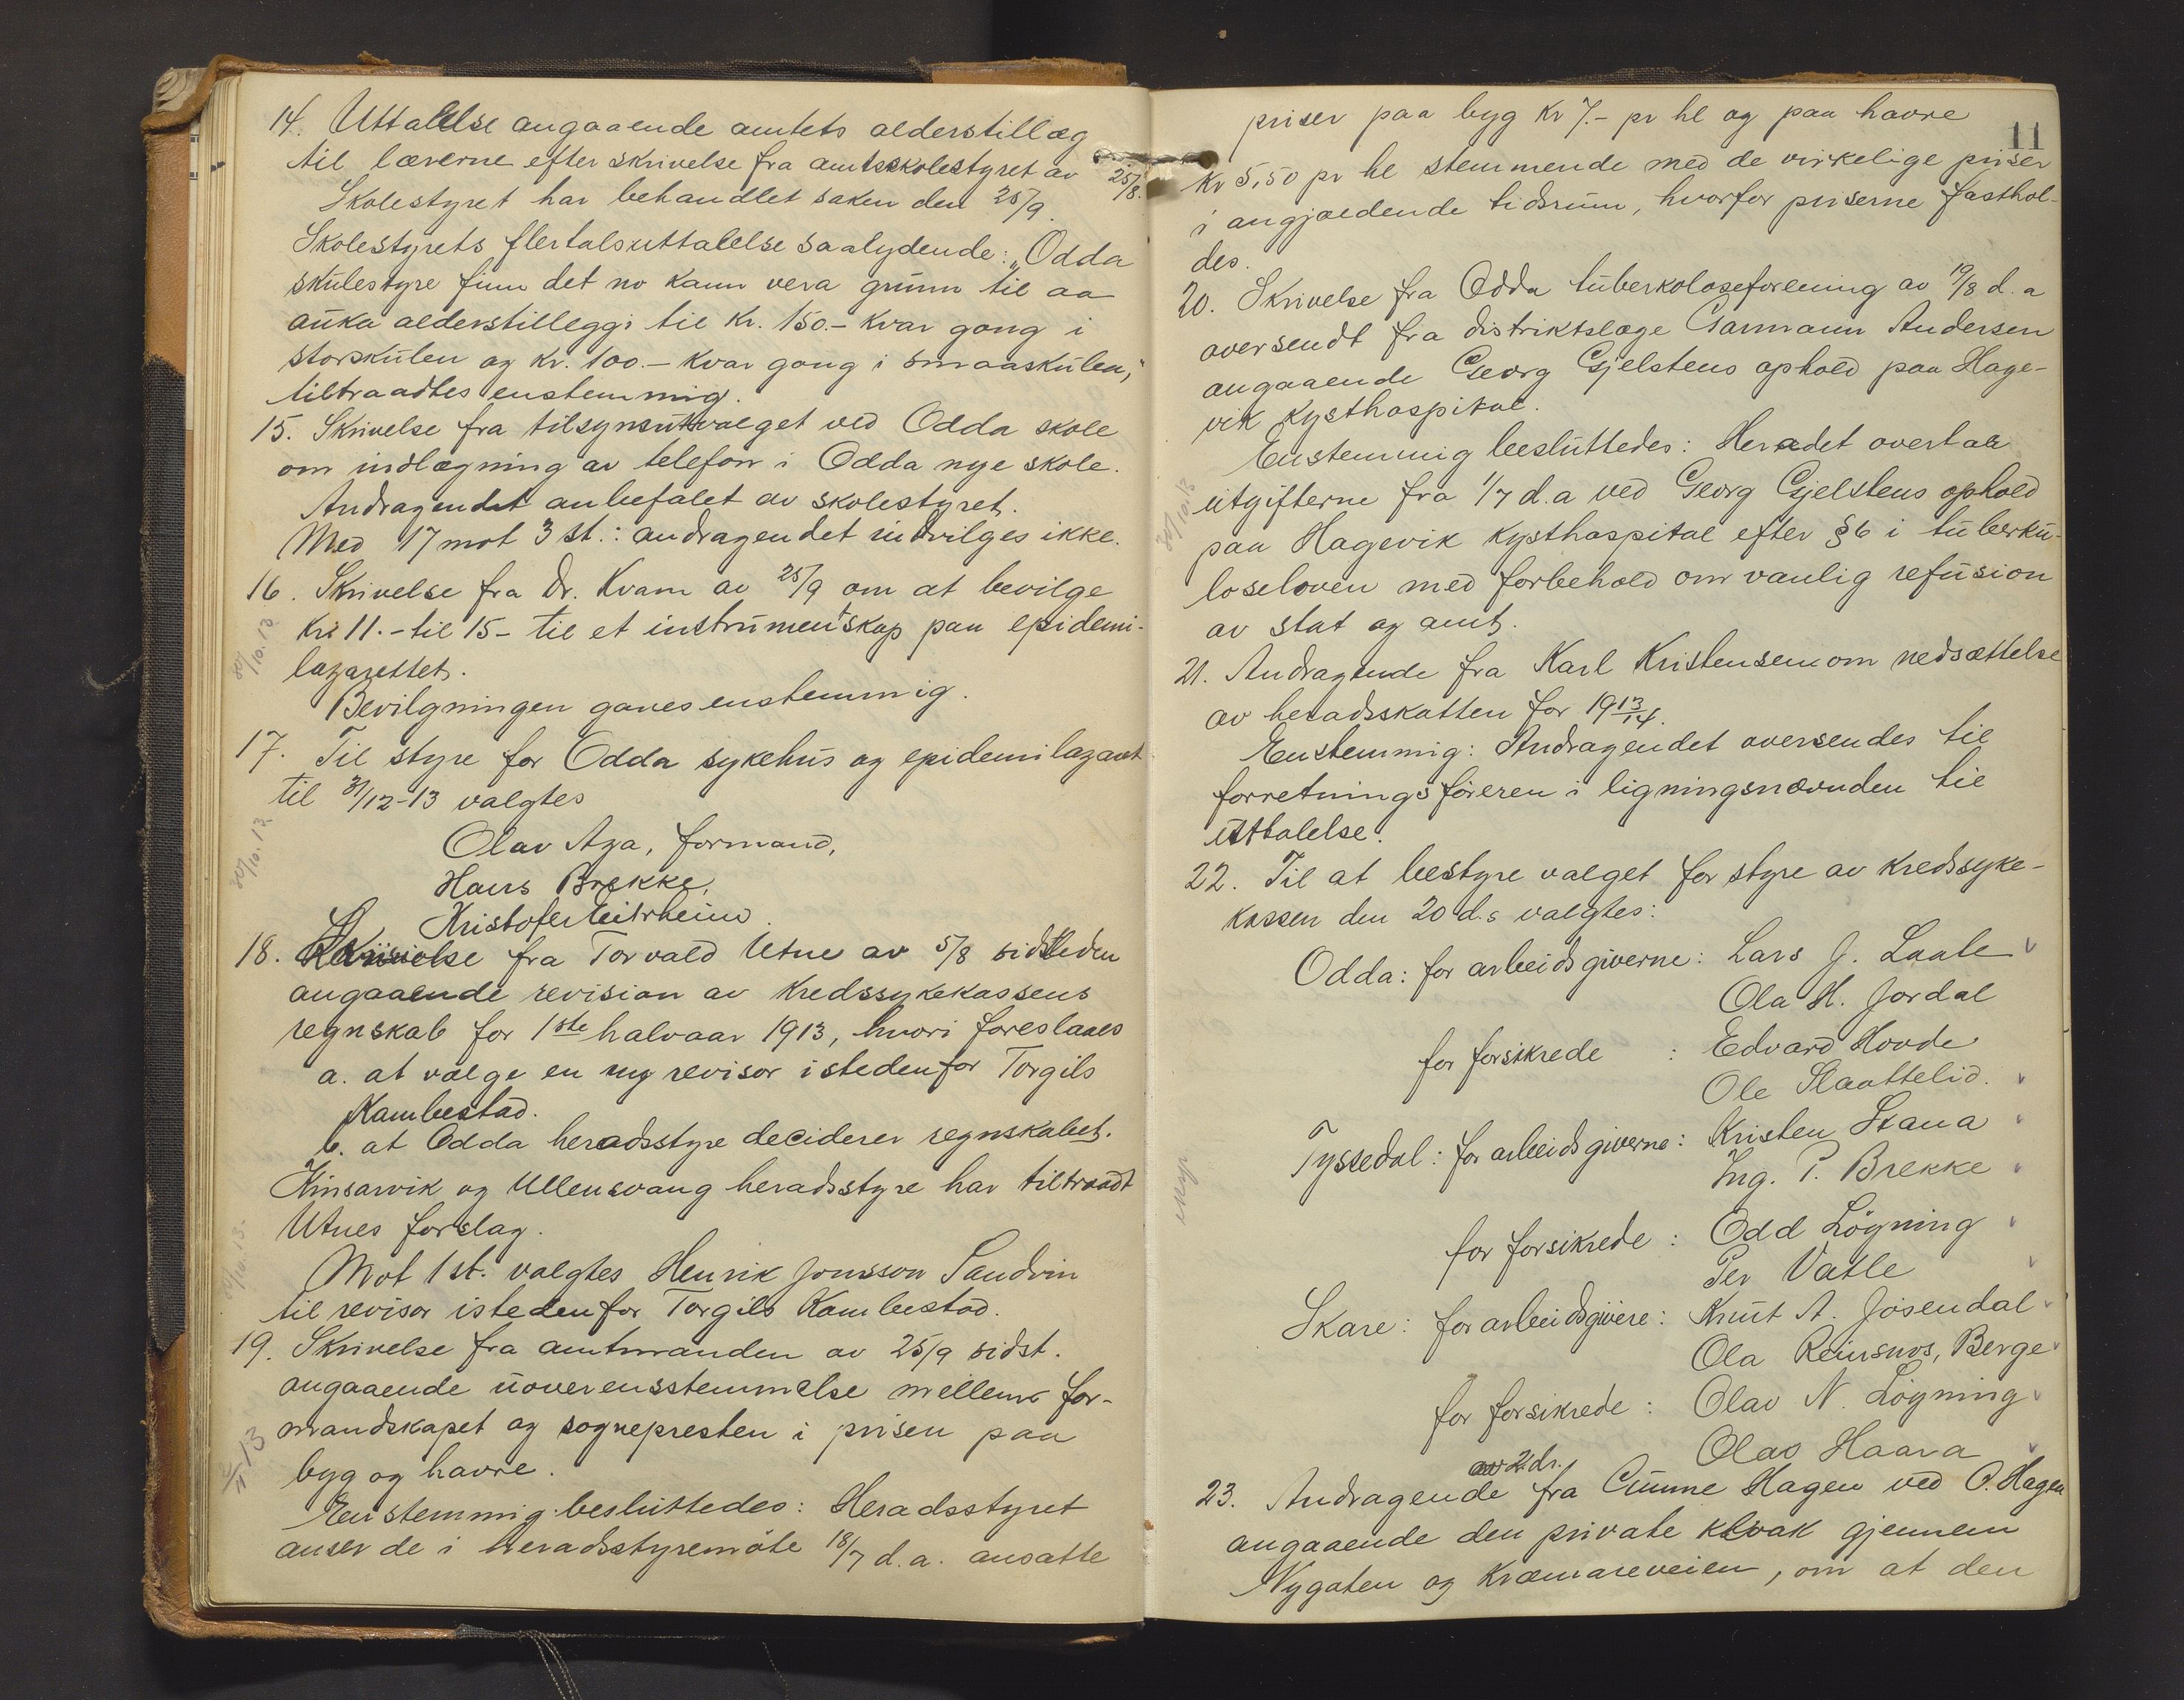 14. Uttalelse angaaende amtets alderstillæg
til lærerne efter skrivelse fra amtsskolestyret av 25/8.
Skolestyret har behandlet saken den 25/9.
Skolestyrets flertalsuttalelse saalydende: „Odda
skulestyre finn det no kann vera grunn til aa
auka alderstilleggi til kr. 150.- kvar gong i
storskulen og kr. 100.- kvar gong i smaaskulen,"
tiltraadtes enstemmig.
15. Skrivelse fra tilsynsutvalget ved Odda skole
om indlægning av telefon i Odda nye skole.
Andragendet anbefalet av skolestyret.
Med 17 mot 3 st.: andragendet indvilges ikke.
16. Skrivelse fra Dr. Kvam av 25/9 om at bevilge
kr. 11.- til 15- til et instrumentskap paa epidemi-
lazarettet.
30/10.13
Bevilgningen gaves enstemmig.
17. Til styre for Odda sykehus og epidemilazaret
til 31/12-13 valgtes
Olav Aga, formand,
30/10.13.
Hans Brekke,
Kristofer Eitrheim.
18. Skrivelse fra Torvald Utne av 5/8 sidstleden
angaaende revision av Kredssykekassens
regnskab for 1ste halvaar 1913, hvori foreslaaes
a. at vælge en ny revisor istedenfor Torgils
Kambestad.
b. at Odda heradsstyre deciderer regnskabet.
Kinsarvik og Ullensvang heradsstyre har tiltraadt
Utnes forslag.
Mot 1 st. valgtes Henrik Jonsson Sandvin
til revisor istedenfor Torgils Kambestad.
19. Skrivelse fra amtmanden av 25/9 sidst.
angaaende uoverensstemmelse mellem for-
mandskapet og sognepresten i prisen paa
byg og havre.
Enstemmig besluttedes: Heradsstyret
anser de i heradsstyremöte 18/7 d.a. ansatte
11
priser paa byg kr 7.- pr hl og paa havre
kr 5,50 pr hl stemmende med de virkelige priser
i angjældende tidsrum, hvorfor priserne fasthol-
des.
20. Skrivelse fra Odda tuberkoloseforening av 19/8 d.a
oversendt fra distriktslæge Garmann Andersen
angaaende Georg Gjelstens ophold paa Hage-
vik kysthospital.
Enstemmig besluttedes: Heradet overtaa
utgifterne fra 1/7 d.a ved Georg Gjelstens ophold
30/10.13
paa Hagevik kysthospital efter §6 i tuberku-
loseloven med forbehold om vanlig refusion
av stat og amt.
21. Andragende fra Karl Kristensen om nedsættelse
av heradsskatten for 1913/14.
Enstemmig: Andragendet oversendes til
forretningsføreren i ligningsnævnden til
uttalelse.
22. Til at bestyre valget for styre av kredssyke-
kassen den 20 d.s valgtes:
Odda: for arbeidsgiverne: Lars J. Laate
Ola H. Jordal
for forsikrede : Edvard Hovde
Ole Slaattelid.
Tyssedal: for arbeidsgiverne: Kristen Stana
Ing. P. Brekke
for forsikrede: Odd Lögning
Per Vatle
Skare: for arbeidsgivere: Knut A. Jösendal
Ola Reinsnos, Berge
for forsikrede: Olav N. Lögning
Olav Haara
av 2. dr.
23. Andragende fra Gunne Hagen ved O. Hagen
angaaende den private kloak gjennem
Nygaten og Kræmareveien, om at den